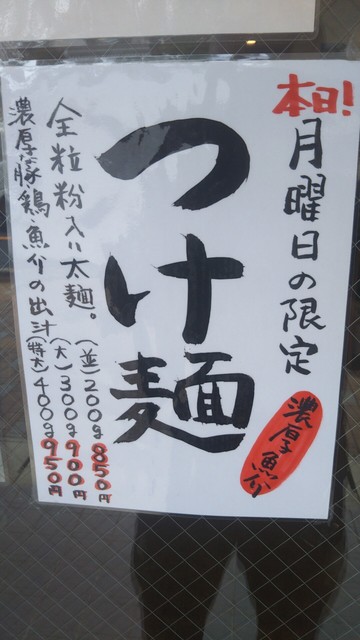 本日!
月曜日の限定
濃厚魚介
つけ麺
全粒粉入り太麺。
濃厚な豚鶏魚介の出汁
(並)200g 850円
(大)300g 900円
(特大)400g 950円